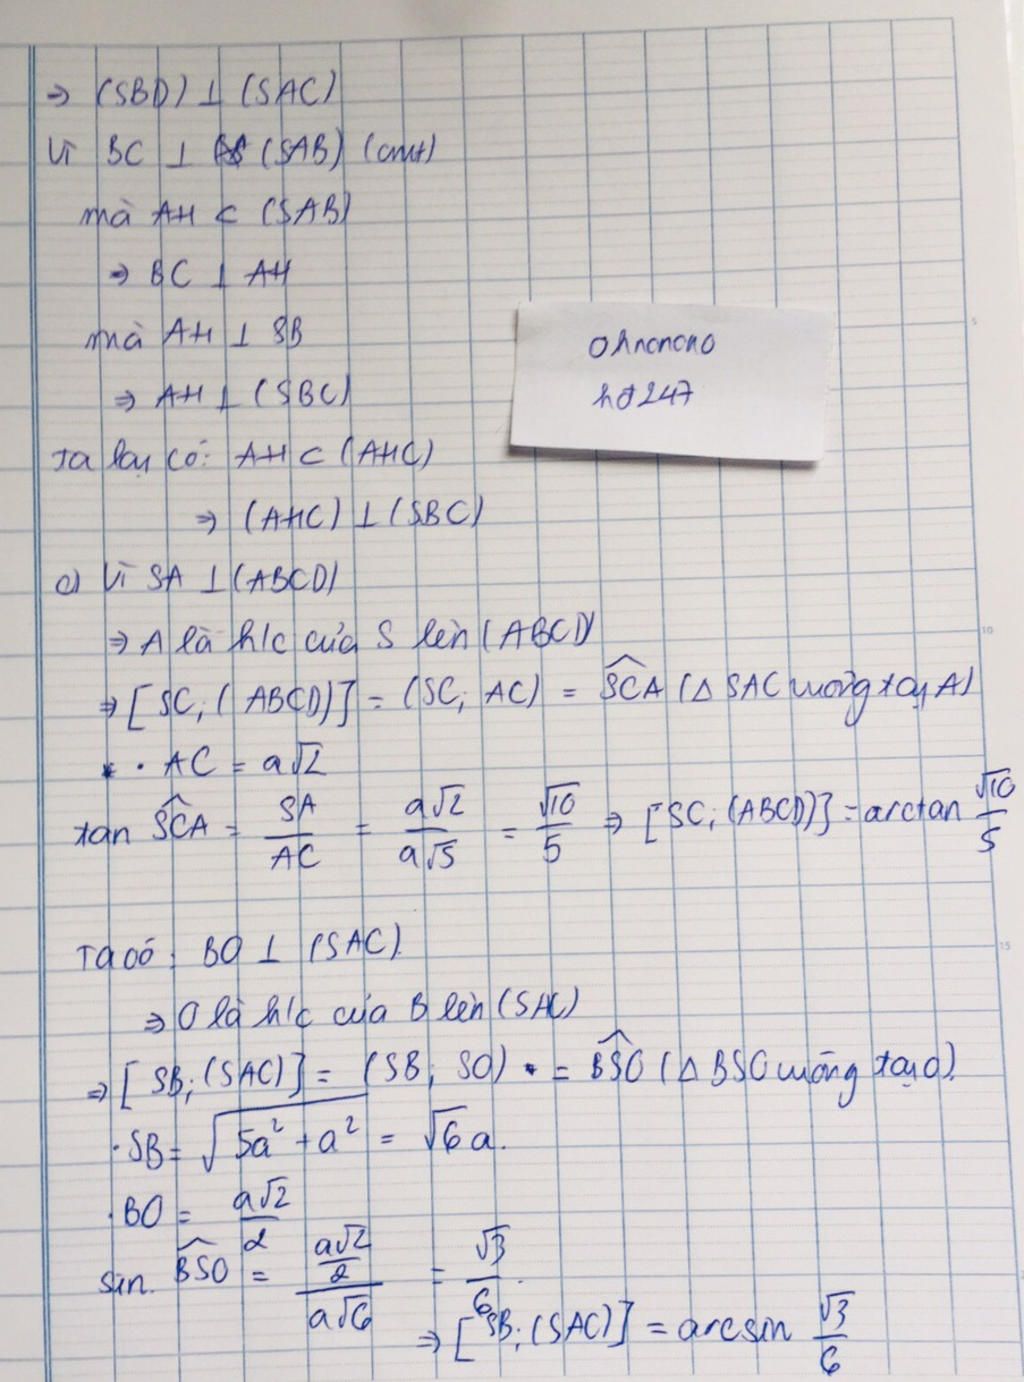 ⇒ (SBD) ⊥ (SAC)
Vì BC ⊥ (SAB) (cmt)
mà AH ⊂ (SAB)
⇒ BC ⊥ AH
mà AH ⊥ SB
⇒ AH ⊥ (SBC)
Ohnonono
hđ247
Ta lại có: AH ⊂ (AHC)
⇒ (AHC) ⊥ (SBC)
c) Vì SA ⊥ (ABCD)
⇒ A là h/c của S lên (ABCD)
⇒ [SC; (ABCD)] = (SC; AC) = \widehat{SCA} (Δ SAC vuông tại A)
· AC = a√2
tan \widehat{SCA} = SA/AC = a√2/a√5 = √10/5 ⇒ [SC; (ABCD)] = arctan √10/5
Ta có: BO ⊥ (SAC).
⇒ O là h/c của B lên (SAC)
⇒ [SB; (SAC)] = (SB; SO) = \widehat{BSO} (Δ BSO vuông tại O).
· SB = √(5a² + a²) = √6 a.
· BO = a√2/2
sin \widehat{BSO} = (a√2/2)/(a√6) = √3/6.
⇒ [SB; (SAC)] = arcsin √3/6
5
10
15